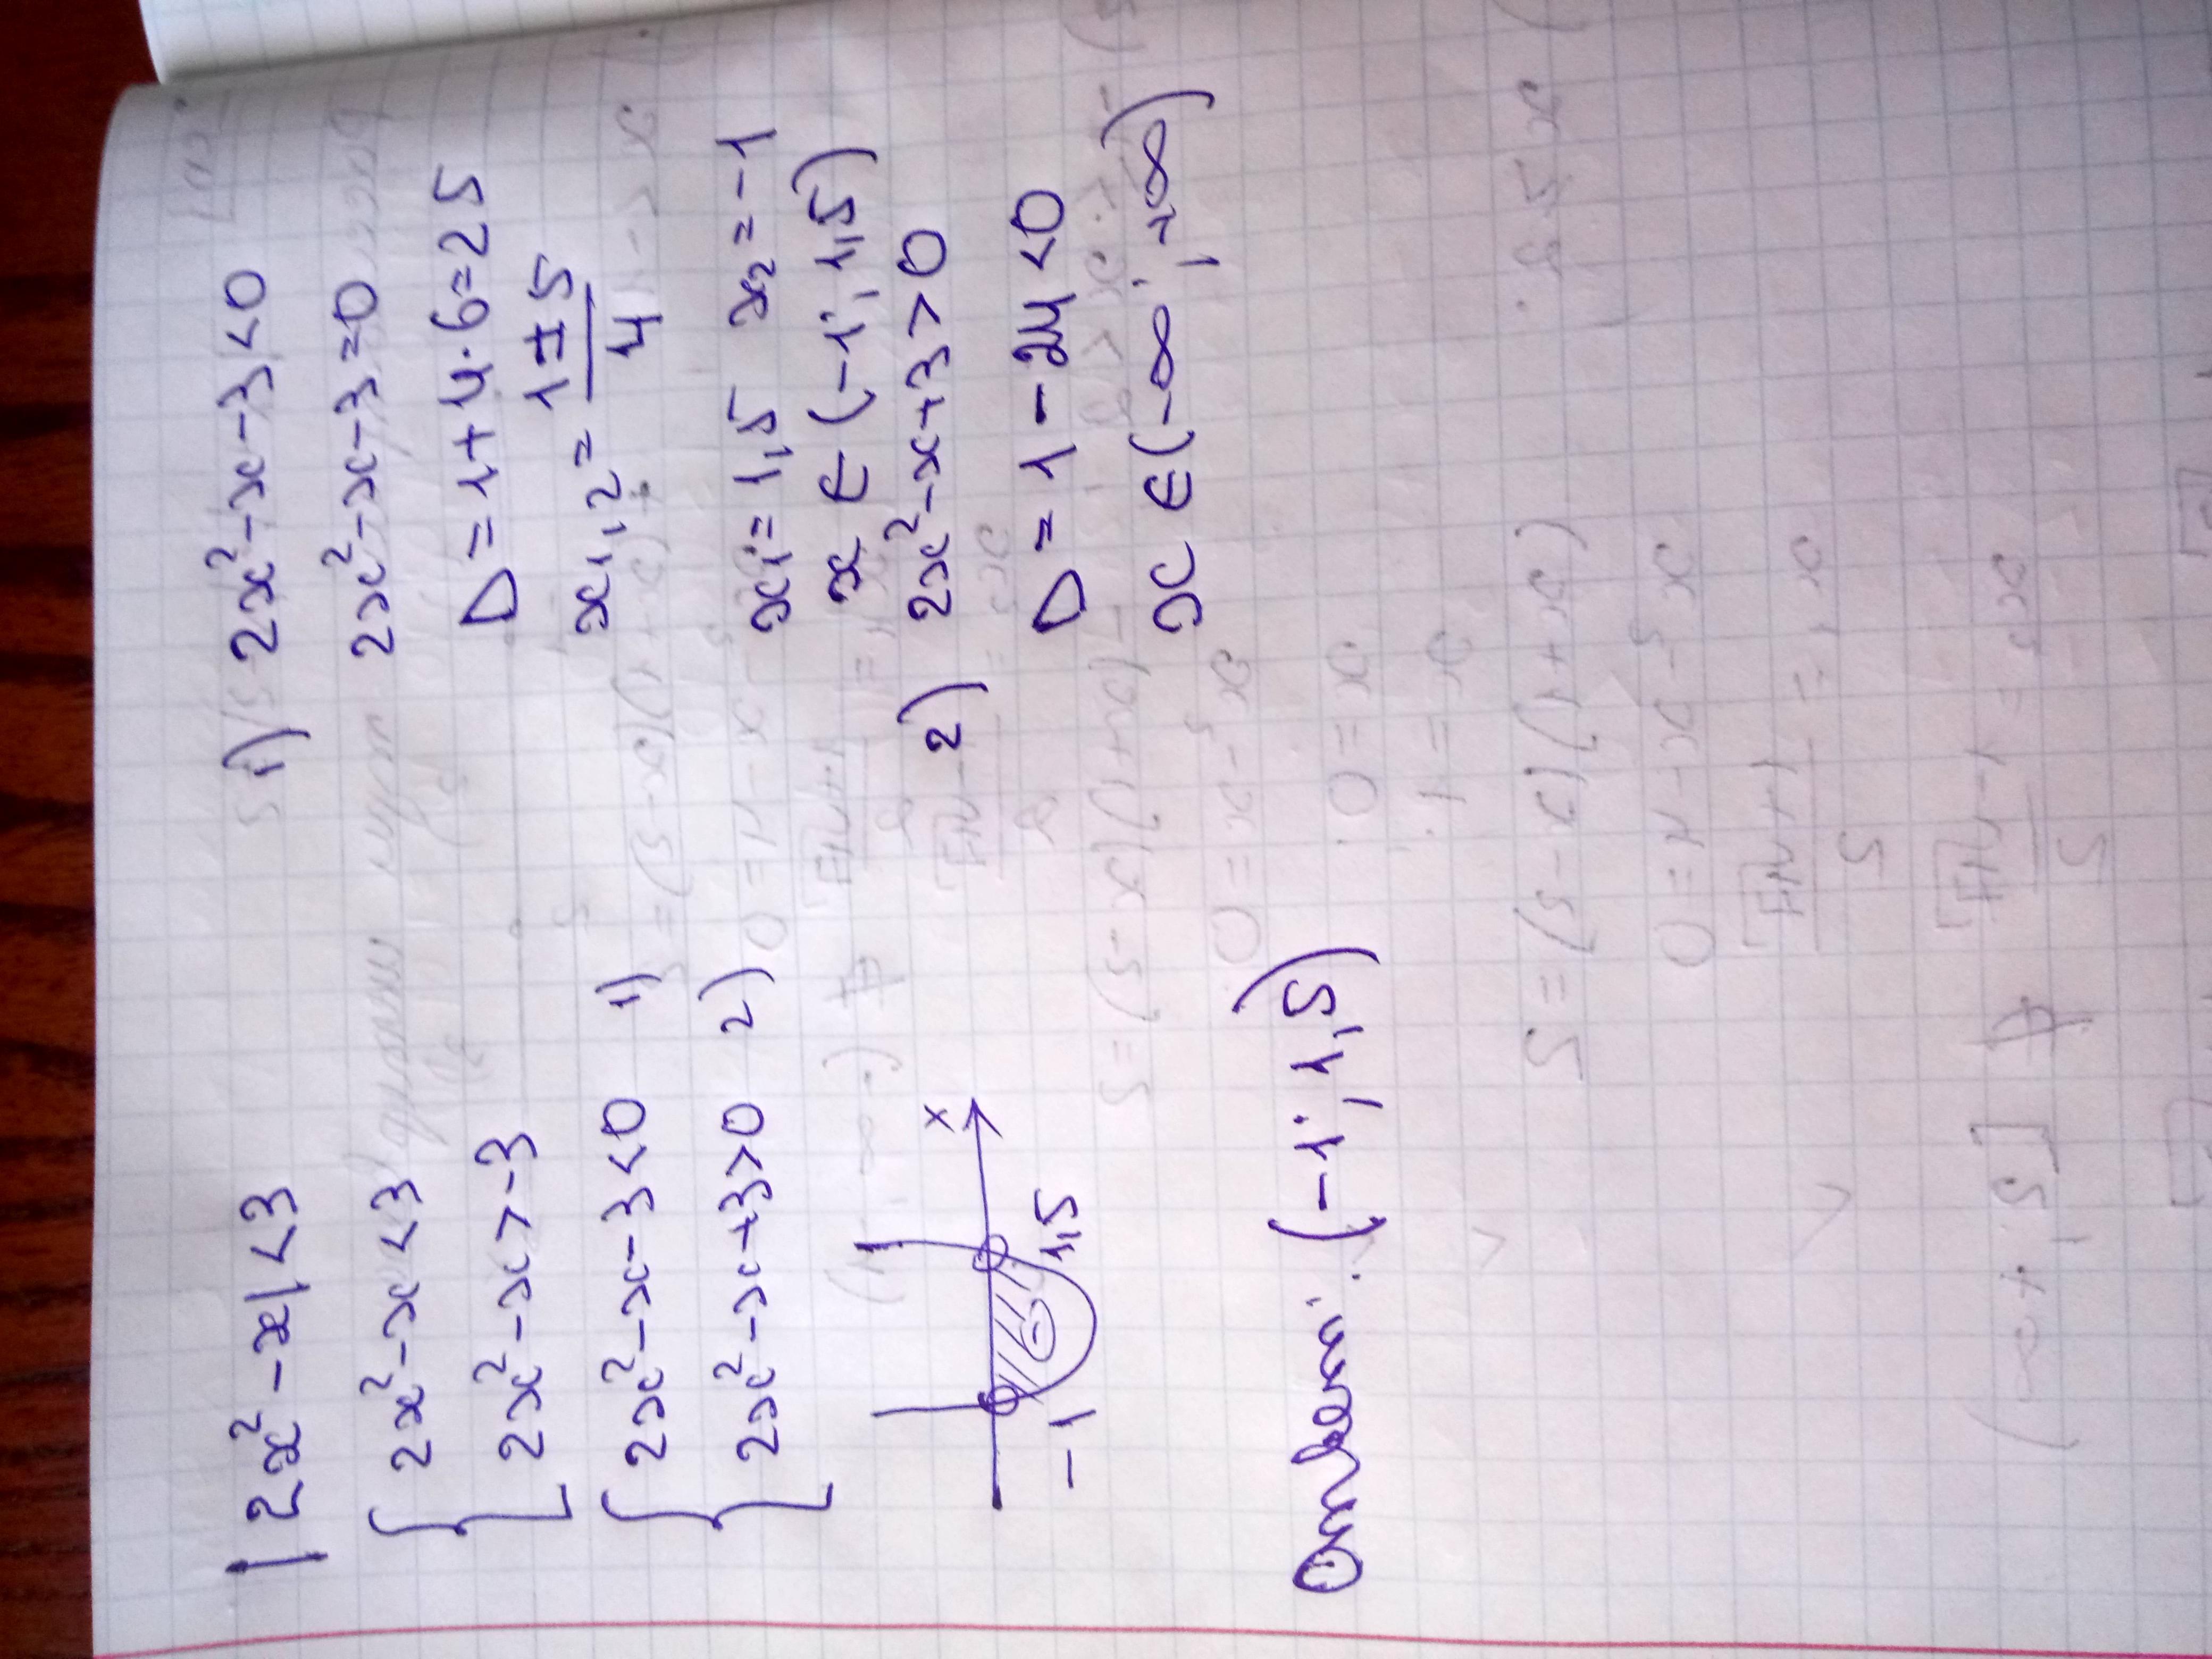 |2x²-x|<3
{2x²-x<3
2x²-x>-3
{2x²-x-3<0 1)
2x²-x+3>0 2)
x
-1 1,5
Ответ: (-1; 1,5)
1) 2x²-x-3<0
2x²-x-3=0
D=1+4·6=25
x₁,₂=(1±5)/4
x₁=1,5 x₂=-1
x∈(-1; 1,5)
2) 2x²-x+3>0
D=1-24<0
x∈(-∞; +∞)